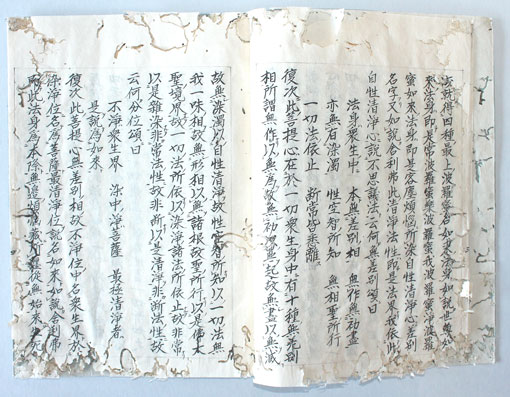 得四種最上波羅蜜名如來法身如說世尊如
來法身即是常波羅蜜樂波羅蜜我波羅蜜淨波羅
蜜如來法身即是客塵煩惱所染自性清淨心差別
名字又如說舍利弗此清淨法性即是法界我依此
自性清淨心說不思議法云何無差別頌曰
法身眾生中　本無差別相　無作無初盡
亦無有染濁　性空智所知　無相聖所行
一切法依止　斷常皆悉離
復次此菩提心在於一切眾生身中有十種無差別
相所謂無作以無為故無初以無起故無盡以無滅
故無染濁以自性清淨故性空智所知以一切法無
我一味相故無形相以無諸根故聖所行以是佛大
聖境界故一切法所依以染淨諸法所依止故非常
以是雜染非常法性故非斷以是清淨非斷法性故
云何分位頌曰
不淨眾生界　染中淨菩薩　最極清淨者
是說為如來
復次此菩提心無差別相故不淨位中名眾生界於
染淨位名為菩薩最清淨位說名如來如說舍利弗
即此法身為本際無邊煩惱藏所纏從無始來生死